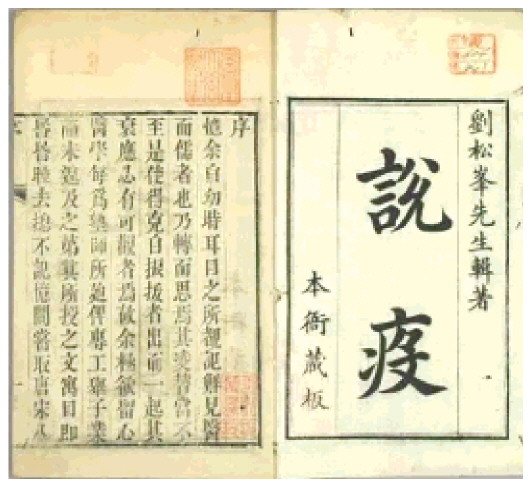 劉松峯先生輯著
說疫
本衙藏板
序
憶余自幼時耳目之所覩記見醫
而儒者也乃轉而思焉其凌替當不
至是使得克自振拔者出而一起其
衰應必有可觀者焉故余極欲留心
醫學每爲塾師所迫俾專工舉子業
而未遑及之第其所授之文寓目即
昏昏睡去總不記憶間嘗取唐宋八